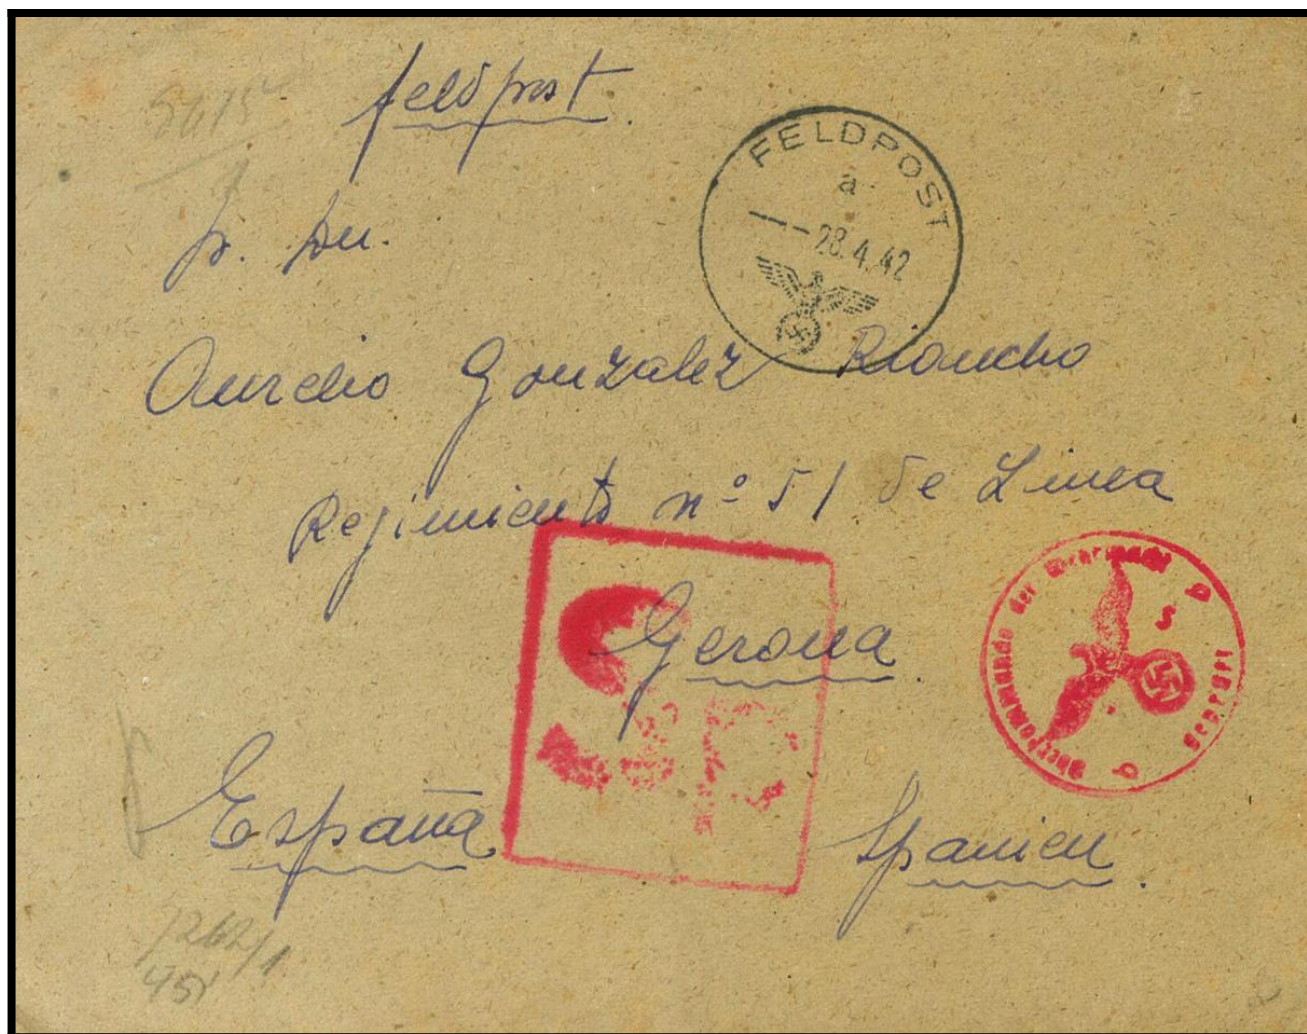 feldpost
FELDPOST
a
28.4.42
Aurelio Gonzalez Riancho
Regimiento nº 51 de Linea
Gerona
Oberkommando der Wehrmacht
Geprüft
España
Spanien